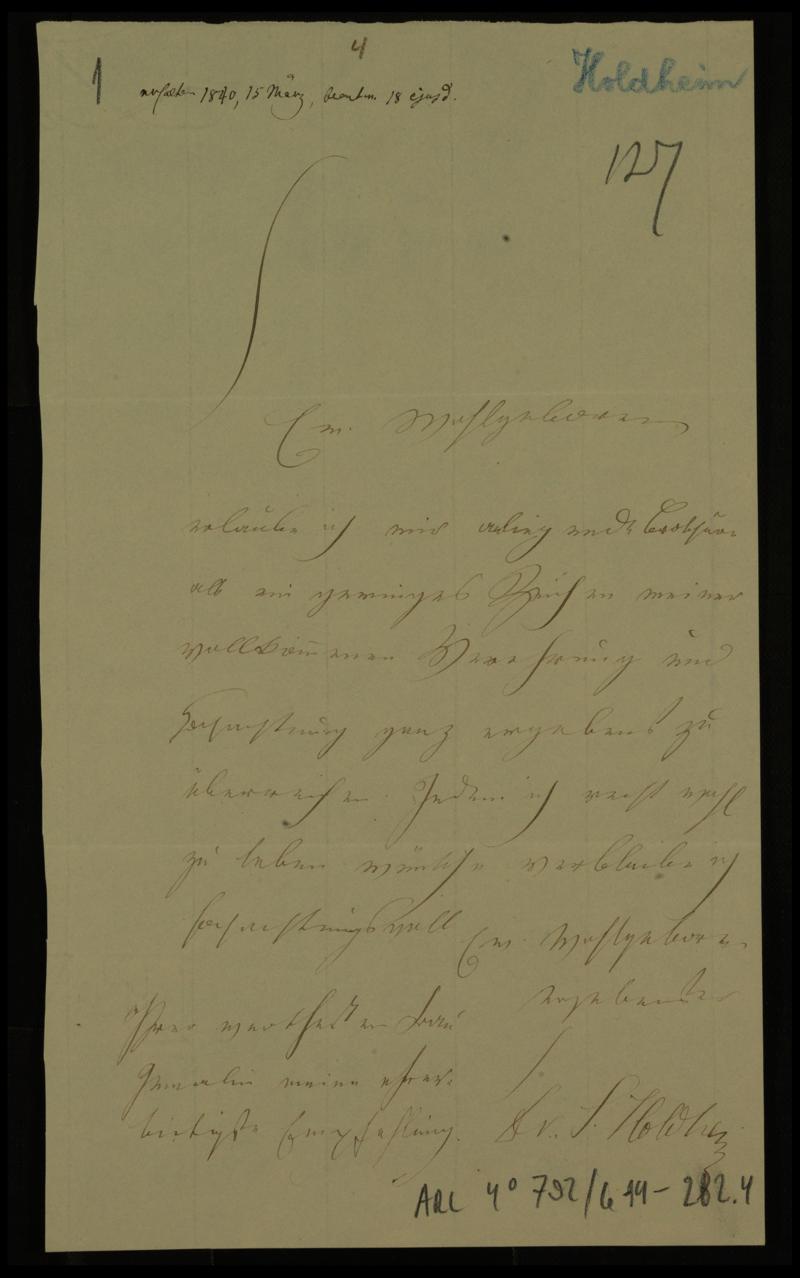 4
1
Holdheim
erhalten 1840, 15 März, beantw. 18 ejusd.
127
Ew. Wohlgeboren
erlaube ich mir
als ein geringes Zeichen meiner
vollkommenen Verehrung und
Hochachtung ganz ergebenst zu
überreichen. Indem ich recht wohl
zu leben wünsche verbleibe ich
hochachtungsvoll
Ew. Wohlgeboren
ergebenster
Dr. S. Holdheim
Ihrer werthesten Frau
Gemalin meine ehrer-
bietigste Empfehlung.
ARC 4° 792/G 14 - 282.4